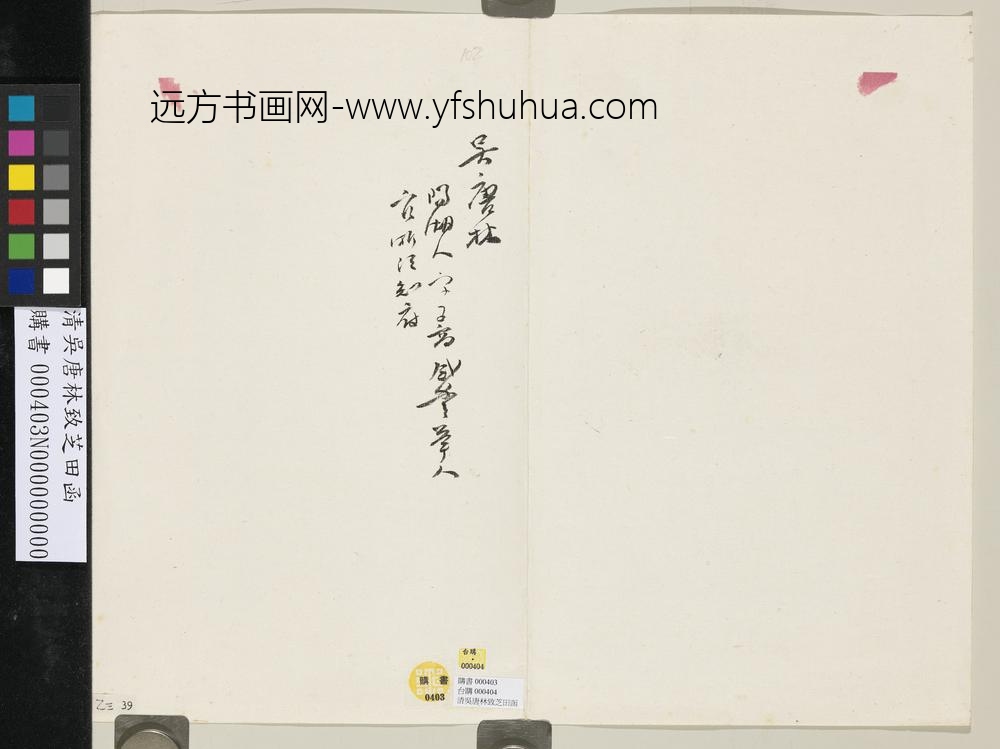 102
远方书画网-www.yfshuhua.com
吴唐林
陽湖人字子高咸豐舉人
官浙江知府
清吳唐林致芝田函
購書 000403N000000000
台購
000404
購書
0403
購書 000403
台購 000404
清吳唐林致芝田函
乙三 39